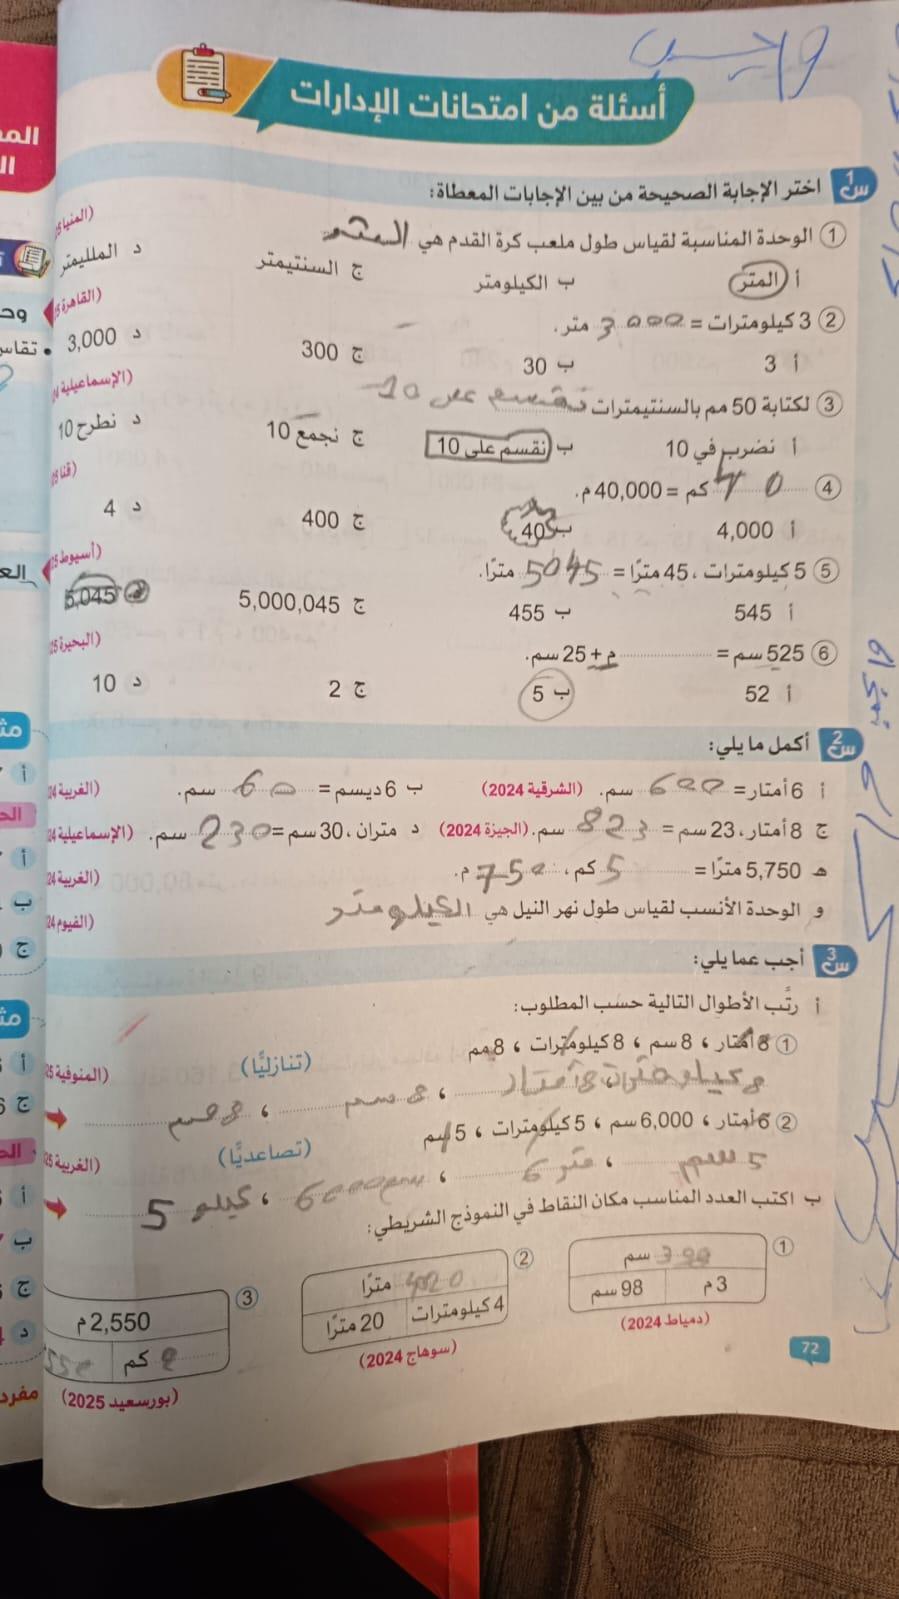 واجب
أسئلة من امتحانات الإدارات
س1 اختر الإجابة الصحيحة من بين الإجابات المعطاة:
1 الوحدة المناسبة لقياس طول ملعب كرة القدم هي المتر (المنيا
أ المتر ب الكيلومتر ج السنتيمتر د الملليمتر
2 3 كيلومترات = 3000 متر. (القاهرة
أ 3 ب 30 ج 300 د 3,000
3 لكتابة 50 مم بالسنتيمترات نقسم على 10 (الإسماعيلية
أ نضرب في 10 ب نقسم على 10 ج نجمع 10 د نطرح 10
4 40 كم = 40,000 م. (قنا
أ 4,000 ب 40 ج 400 د 4
5 5 كيلومترات ، 45 مترًا = 5045 مترًا. (أسيوط
أ 545 ب 455 ج 5,000,045 د 5,045
6 525 سم = ........ م + 25 سم. (البحيرة
أ 52 ب 5 ج 2 د 10
س2 أكمل ما يلي:
أ 6 أمتار = 600 سم. (الشرقية 2024) ب 6 ديسم = 60 سم. (الغربية
ج 8 أمتار، 23 سم = 823 سم. (الجيزة 2024) د متران ، 30 سم = 230 سم. (الإسماعيلية
هـ 5,750 مترًا = 5 كم ، 750 م. (الغربية
و الوحدة الأنسب لقياس طول نهر النيل هي الكيلومتر (الفيوم
س3 أجب عما يلي:
أ رتِّب الأطوال التالية حسب المطلوب:
1 8 أمتار ، 8 سم ، 8 كيلومترات ، 8 مم (تنازليًّا) (المنوفية
8 كيلومترات 8 أمتار ، 8 سم ، 8 مم
2 6 أمتار ، 6,000 سم ، 5 كيلومترات ، 5 سم (تصاعديًّا) (الغربية
5 سم ، 6 متر ، 6000 سم ، 5 كيلو
ب اكتب العدد المناسب مكان النقاط في النموذج الشريطي:
1
سم
3 م 98 سم
(دمياط 2024)
2
4020 مترًا
4 كيلومترات 20 مترًا
(سوهاج 2024)
3
2,550 م
كم
(بورسعيد 2025)
72